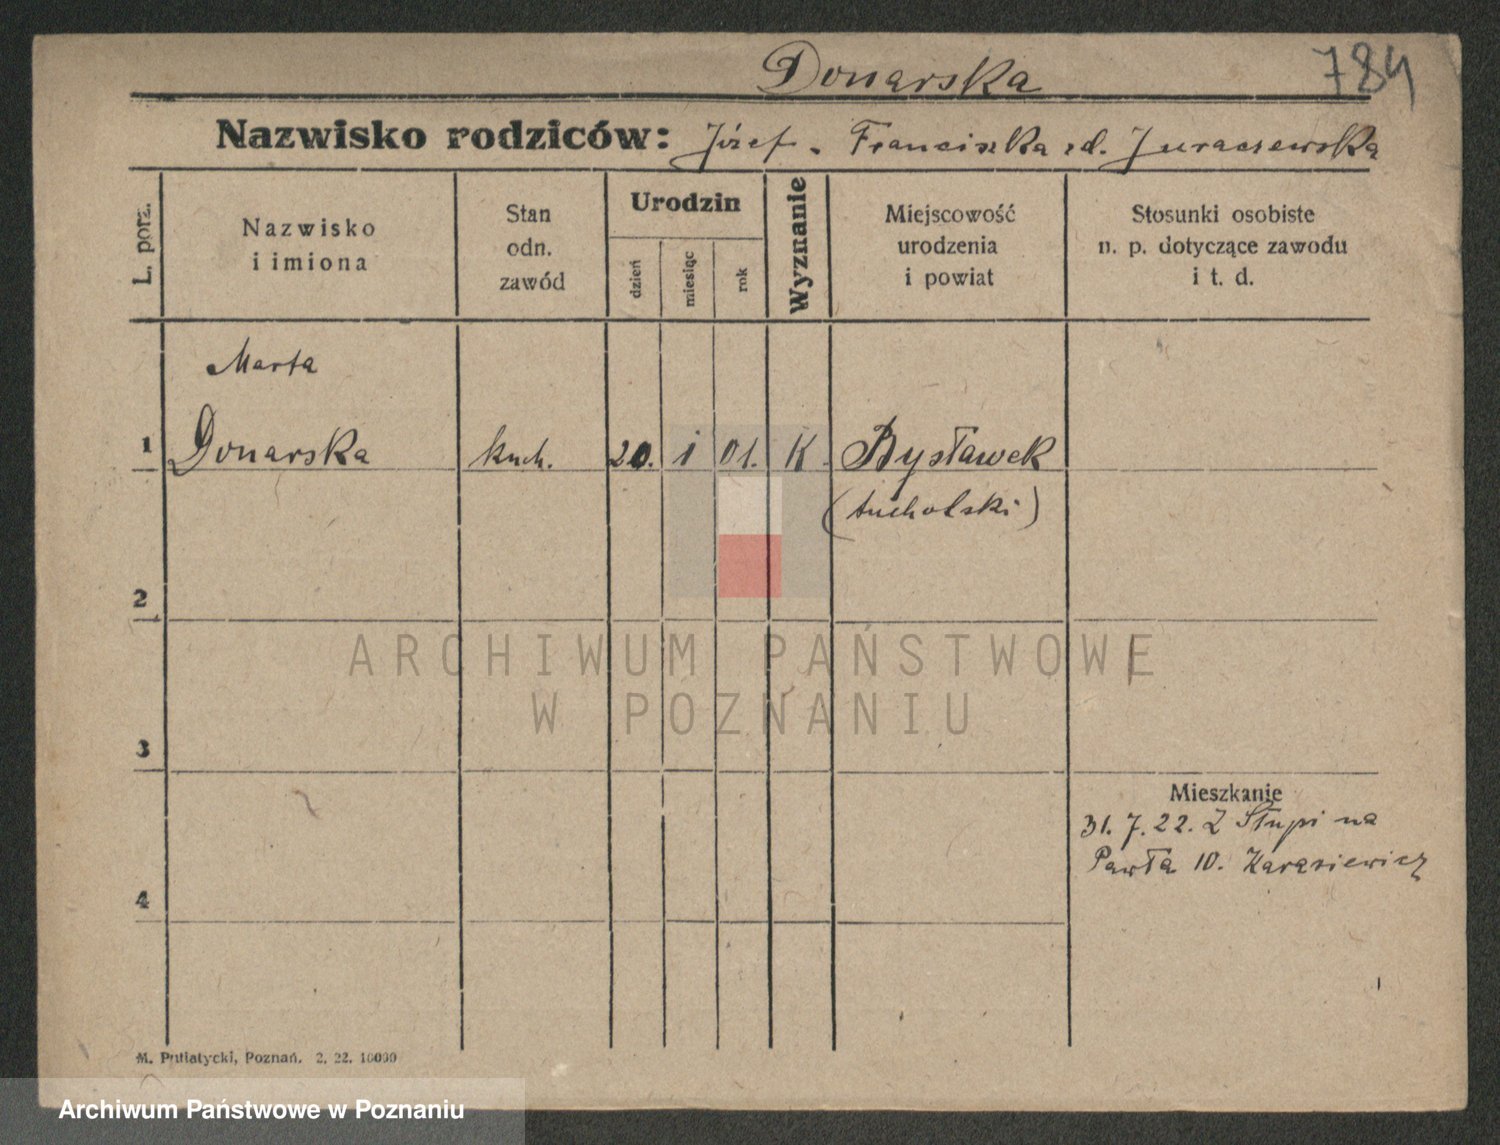 Donarska
784
Nazwisko rodziców: Józef - Franciszka zd. Juraszewska
L. porz.
Nazwisko
i imiona
Stan
odn.
zawód
Urodzin
dzień
miesiąc
rok
Wyznanie
Miejscowość
urodzenia
i powiat
Stosunki osobiste
n. p. dotyczące zawodu
i t. d.
Marta
1 Donarska kuch. 20. i 01. K. Bysławek
(tucholski)
2
3
4
Mieszkanie
31. 7. 22. Z Słupi na
Pawła 10. Karasiewicz
M. Putiatycki, Poznań. 2. 22. 10000
ARCHIWUM PAŃSTWOWE
W POZNANIU
Archiwum Państwowe w Poznaniu